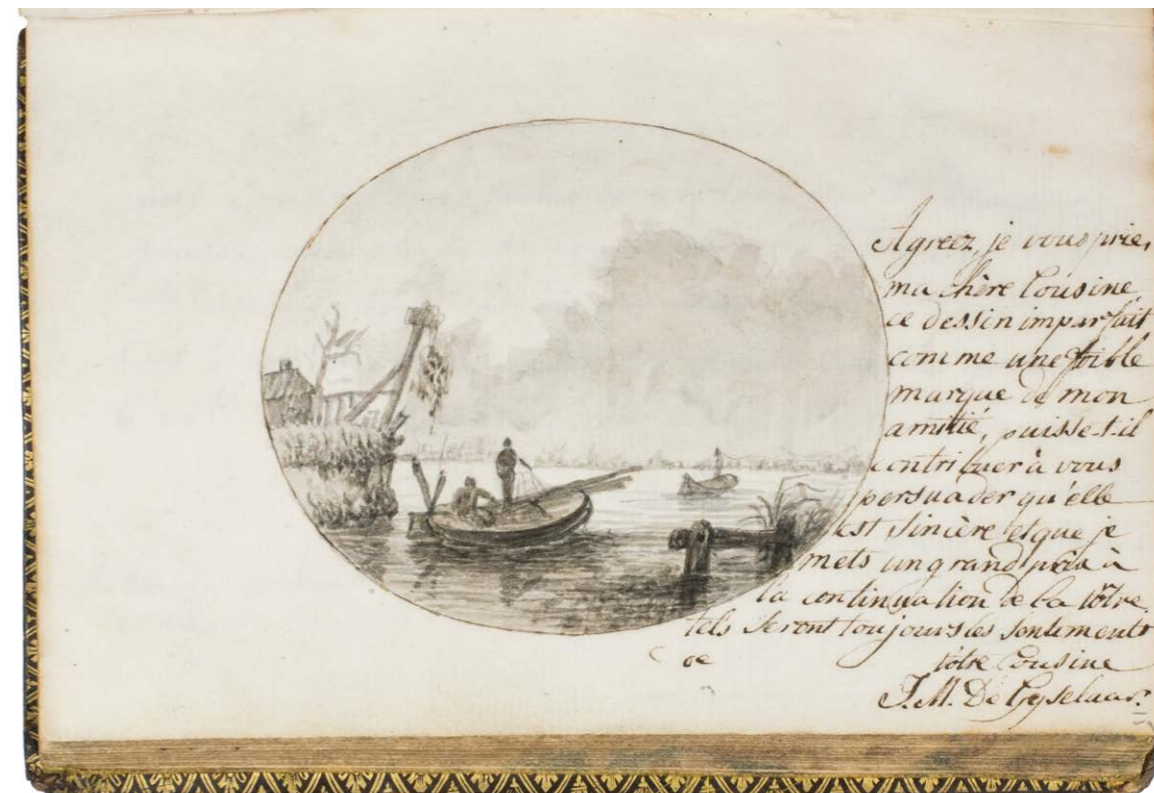 Agreéz, je vous prie,
ma chère Cousine
ce dessin imparfait
comme une foible
marque de mon
amitié, puisse-t-il
contribuer à vous
persuader qu'elle
est sincère et que je
mets un grand prix à
la continuation de la vôtre.
tels seront toujours les sentiments
de vôtre Cousine
J. M. De Gyselaar.